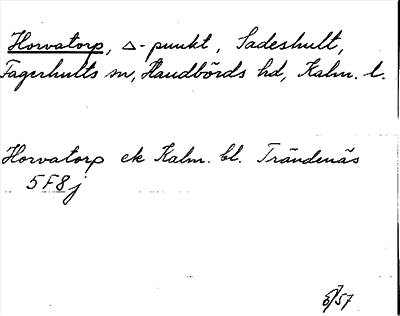 Horvatorp, △-punkt, Sadeshult,
Fagerhults sn, Handbörds hd, Kalm. l.
Horvatorp ek Kalm. bl. Trändenäs
5F8j